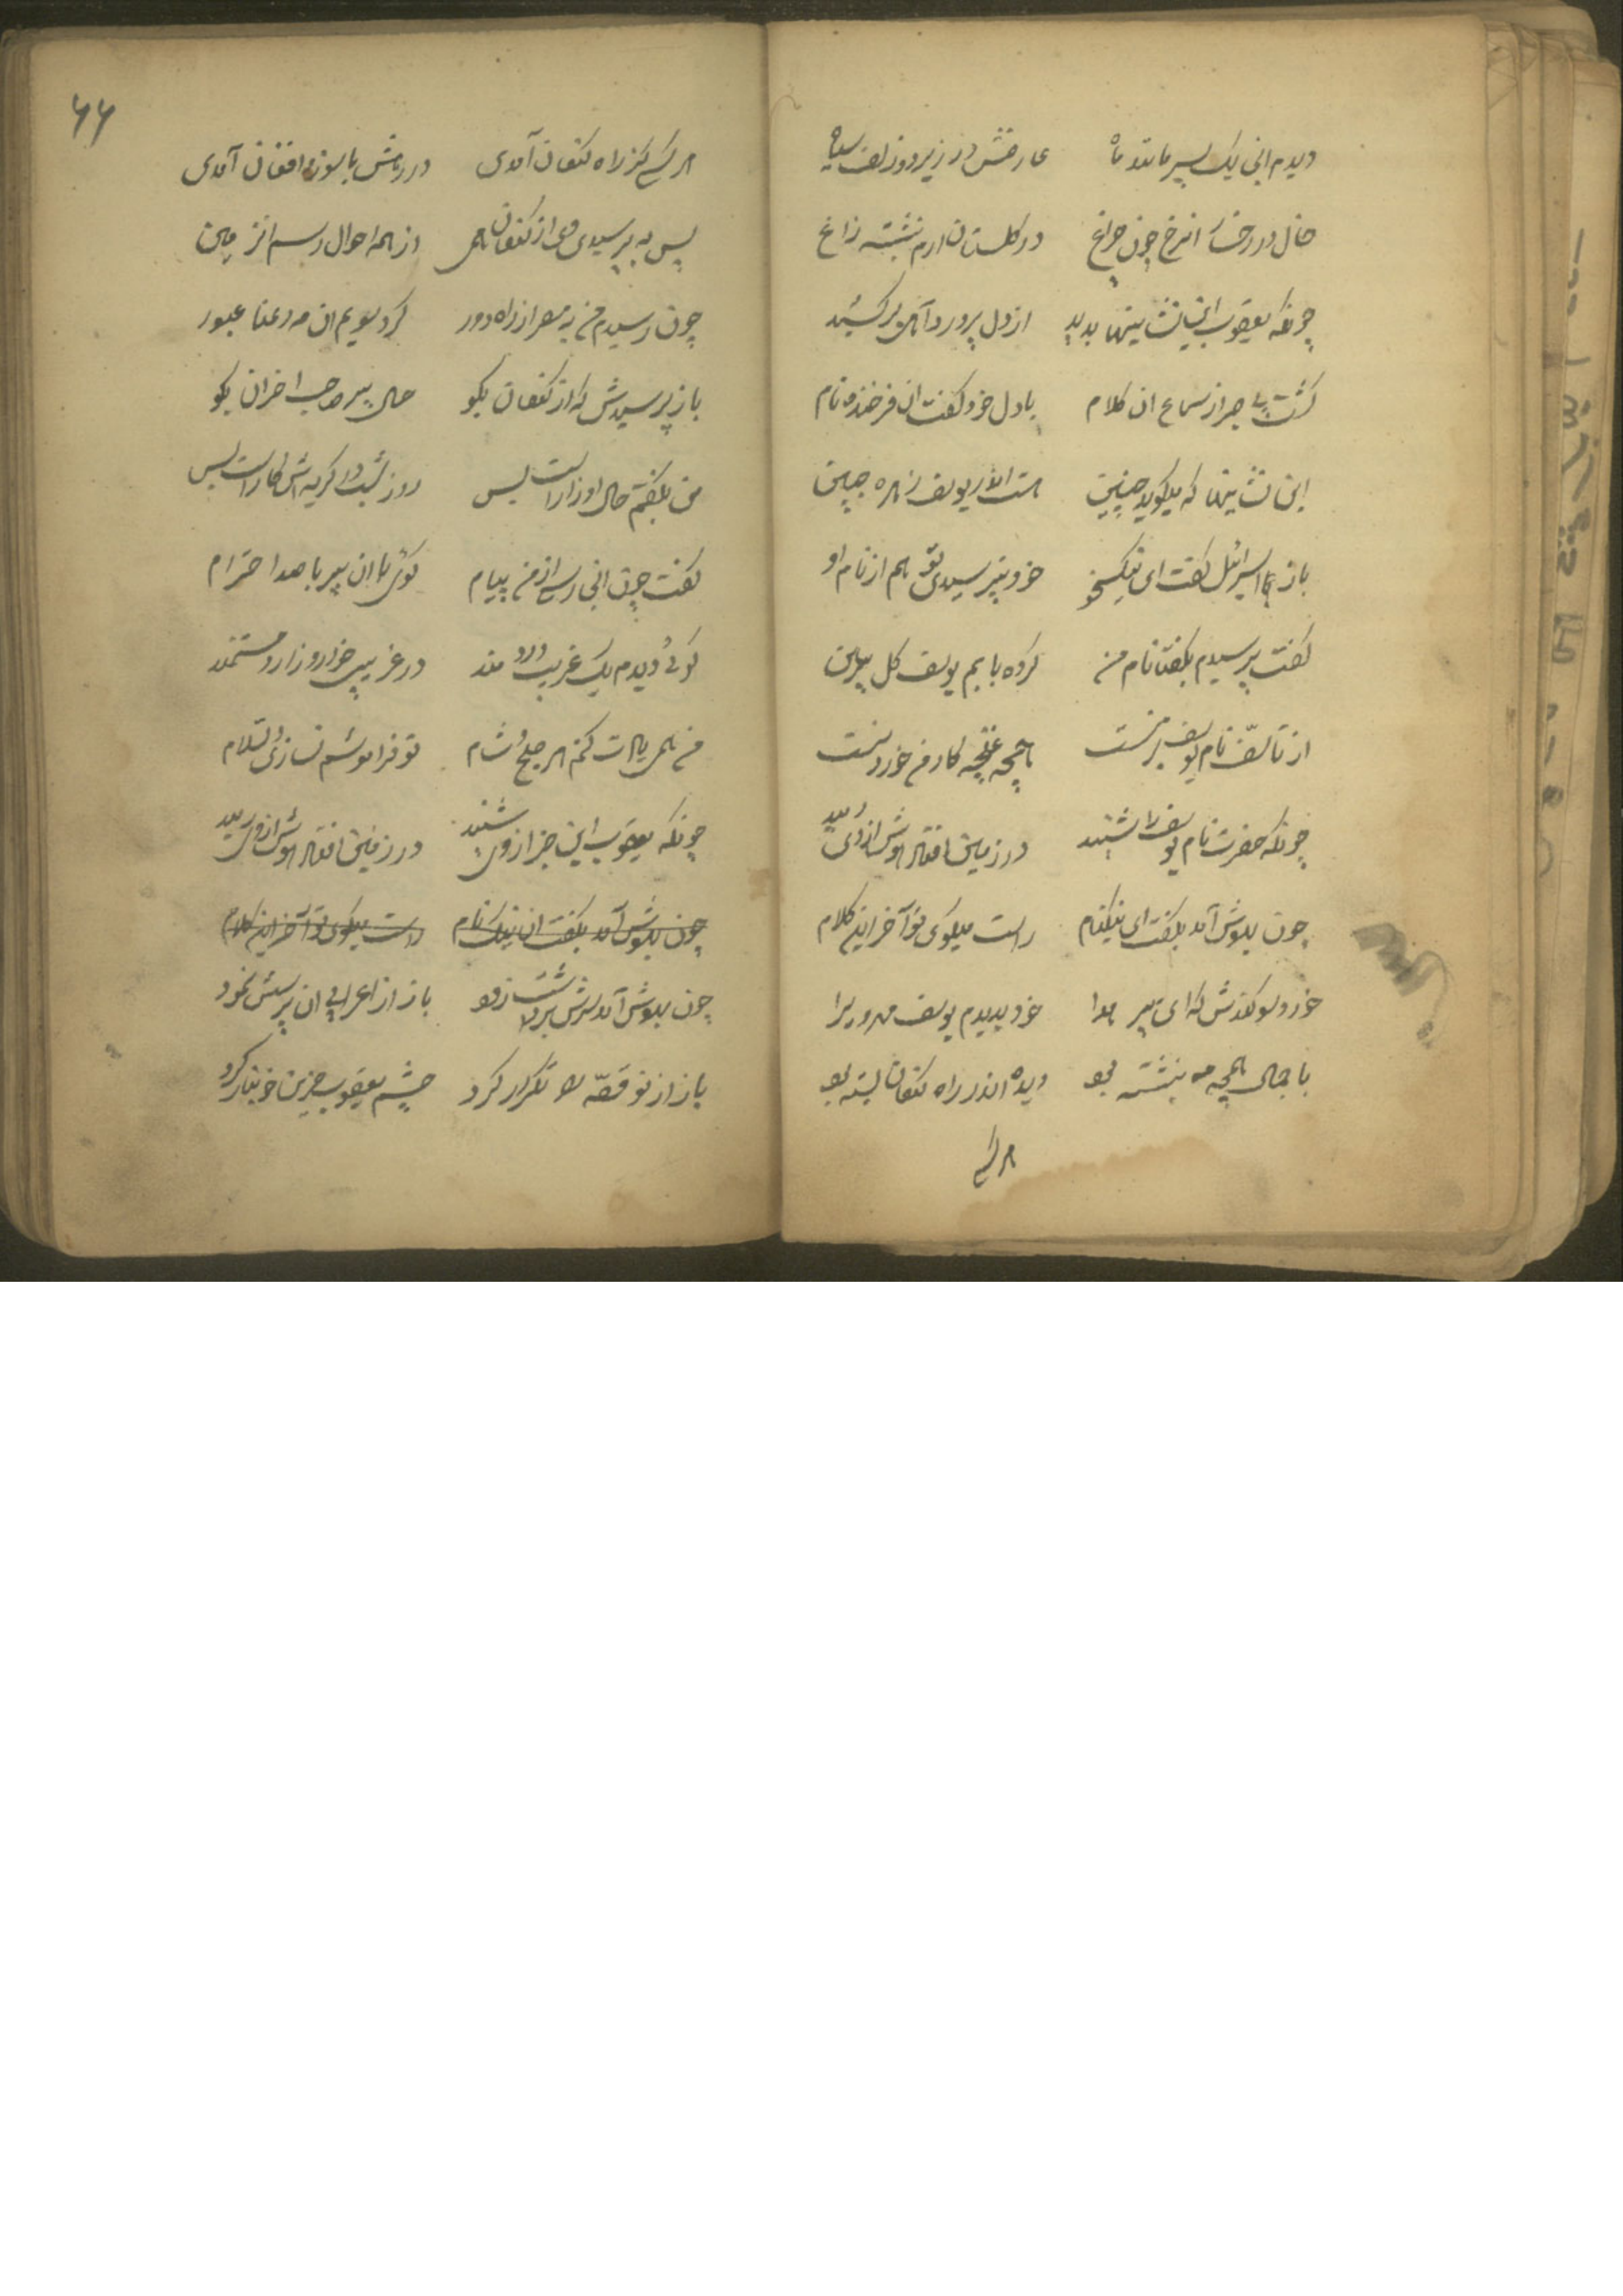 دیدم انی یک پسر مانند ماه عارضش در زیر دو زلف سیاه
خال در رخسار انرخ چون چراغ در گلستان ارم بنشسته زاغ
چونکه یعقوب این نشانیها بدید از دل پر درد آهی برکشید
گشت بی صبر از سماع ان کلام با دل خود گفت ان فرخنده نام
این نشانیها که میکوید چنین هست الان یوسف زهره جبین
باز اسرائیل گفت ای نیکخو خود نپرسیدی تو هم از نام او
گفت پرسیدم بگفتا نام من کرده بابم یوسف گل پیرهن
از تاسف نام یوسف بر منست همچه غنچه کار من خوردنست
چونکه حضرت نام یوسف را شنید در زمین افتاد هوش از وی رمید
چون بهوش آمد بگفت ای نیکنام راست میکوی تو آخر این کلام
خورد سوکندش که ای پیر هدا خود بدیدم یوسف مهرو را
با جمال همچه مه بنشسته بود دیده اندر راه کنعان بسته بود
هر کسی
۶۶
هر کسی کز راه کنعان آمدی در رهش با سوز و افغان آمدی
پس به پرسیدی وی از کنعان همی از همه احوال و رسم انزمین
چون رسیدم من به مصر از راه دور کرد سویم ان مه رعنا عبور
باز پرسیدش که از کنعان بکو حال پیر صاحب احزان بکو
من بگفتم حال او زار است بس روز شب در کریه اش کار است بس
گفت چون انجا رسی از من پیام کوی با ان پیر با صد احترام
کوی دیدم یک غریب درد مند در غریبی خوار و زار و مستمند
من همی یادت کنم هر صبح و شام تو فراموشم نسازی والسلام
چونکه یعقوب این خبر از وی شنید در زمین افتاد هوش از وی رمید
چون بهوش آمد بگفت ان نیک نام راست میکوی تو آخر این کلام
چون بهوش آمد سرش برداشت زود باز از اعرابی ان پرسش نمود
باز از نو قصه را تکرار کرد چشم یعقوب حزین خونبار کرد